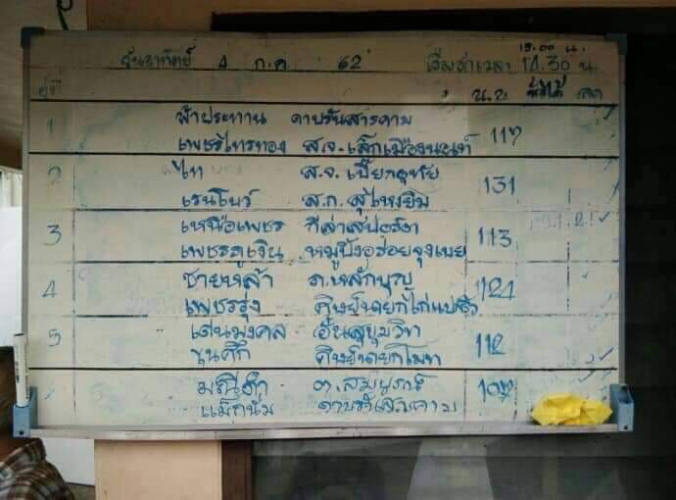 วันอาทิตย์ 4 ก.ค. 62 เริ่มชกเวลา 14.30 น.
15.00 น.
คู่ที่ น.น.
1 ฟ้าประทาน ดาบรันสารคาม
เพชรไทรทอง ส.จ.เล็กเมืองนนท์ 117
2 ไท ส.จ.เปี๊ยกอุทัย
เรนโบว์ 131
3 เหนือเพชร กีล่าสปอร์ต
เพชรภูเงิน หมูปิ้งอร่อยจุงเบย 113
4 ชายหล้า ภ.หลักบุญ
เพชรรุ่ง ศิษย์นายกไก่แปดริ้ว 121
5 เด่นมงคล อันสุขุมวิท
ขุนศึก ศิษย์นายกโมท 112
มณีดำ ต.สมบูรณ์
แม็กนั่ม